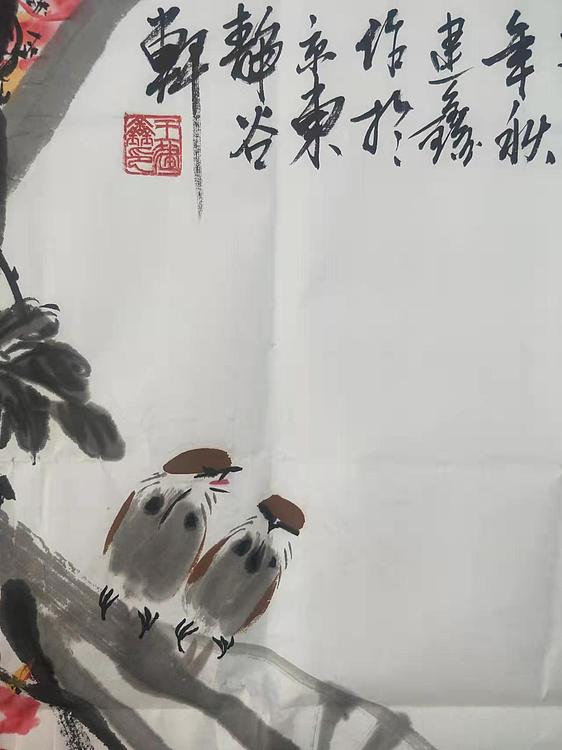 年秋
建鑫
作於
京東
静谷
軒
王建
鑫印